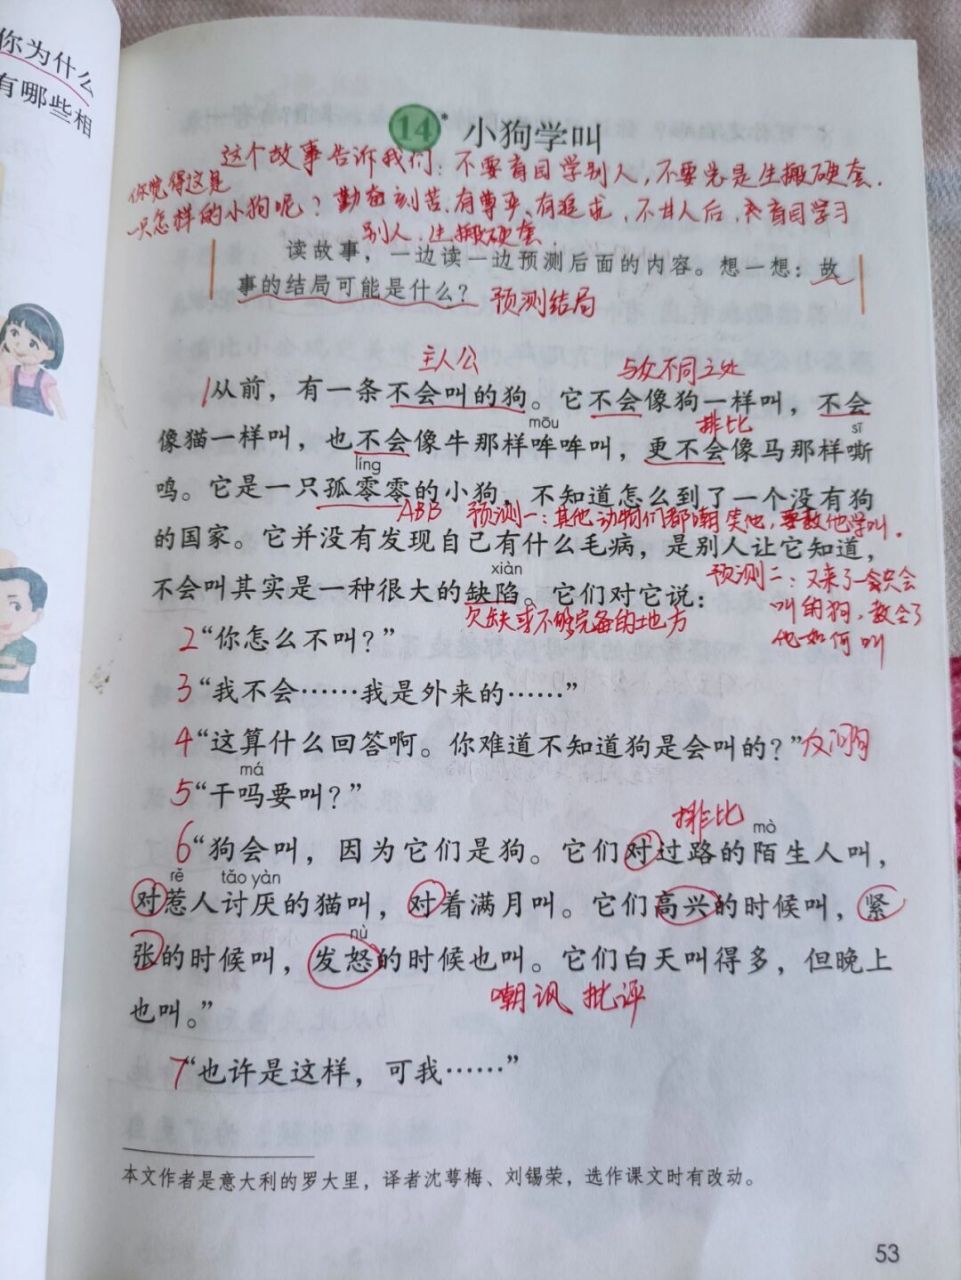 你为什么
有哪些相
14* 小狗学叫
这个故事告诉我们：不要盲目学别人，不要总是生搬硬套.
你觉得这是
一只怎样的小狗呢？勤奋刻苦,有尊严,有追求，不甘人后，不盲目学习
别人，生搬硬套
读故事，一边读一边预测后面的内容。想一想：故
事的结局可能是什么？ 预测结局
主人公 与众不同之处
1从前，有一条不会叫的狗。它不会像狗一样叫，不会
mōu 排比 sī
像猫一样叫，也不会像牛那样哞哞叫，更不会像马那样嘶
líng
鸣。它是一只孤零零的小狗，不知道怎么到了一个没有狗
ABB 预测一：其他动物们都嘲笑他，要教他学叫。
的国家。它并没有发现自己有什么毛病，是别人让它知道，
xiàn 预测二：又来了一只会
不会叫其实是一种很大的缺陷。它们对它说：
欠缺或不够完备的地方 叫的狗，教会了
2“你怎么不叫？” 他如何叫
3“我不会……我是外来的……”
4“这算什么回答啊。你难道不知道狗是会叫的？”反问
má
5“干吗要叫？”
排比 mò
6“狗会叫，因为它们是狗。它们对过路的陌生人叫，
rě tǎo yàn
对惹人讨厌的猫叫，对着满月叫。它们高兴的时候叫，紧
nù
张的时候叫，发怒的时候也叫。它们白天叫得多，但晚上
嘲讽 批评
也叫。”
7“也许是这样，可我……”
本文作者是意大利的罗大里，译者沈萼梅、刘锡荣，选作课文时有改动。
53